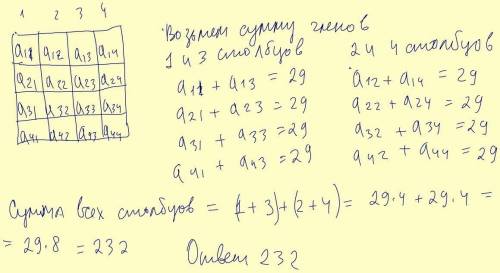 1 2 3 4
a11 a12 a13 a14
a21 a22 a23 a24
a31 a32 a33 a34
a41 a42 a43 a44
Возьмем сумму членов
1 и 3 столбцов
a11 + a13 = 29
a21 + a23 = 29
a31 + a33 = 29
a41 + a43 = 29
2 и 4 столбцов
a12 + a14 = 29
a22 + a24 = 29
a32 + a34 = 29
a42 + a44 = 29
Сумма всех столбцов = (1 + 3) + (2 + 4) = 29·4 + 29·4 =
= 29·8 = 232
Ответ 232